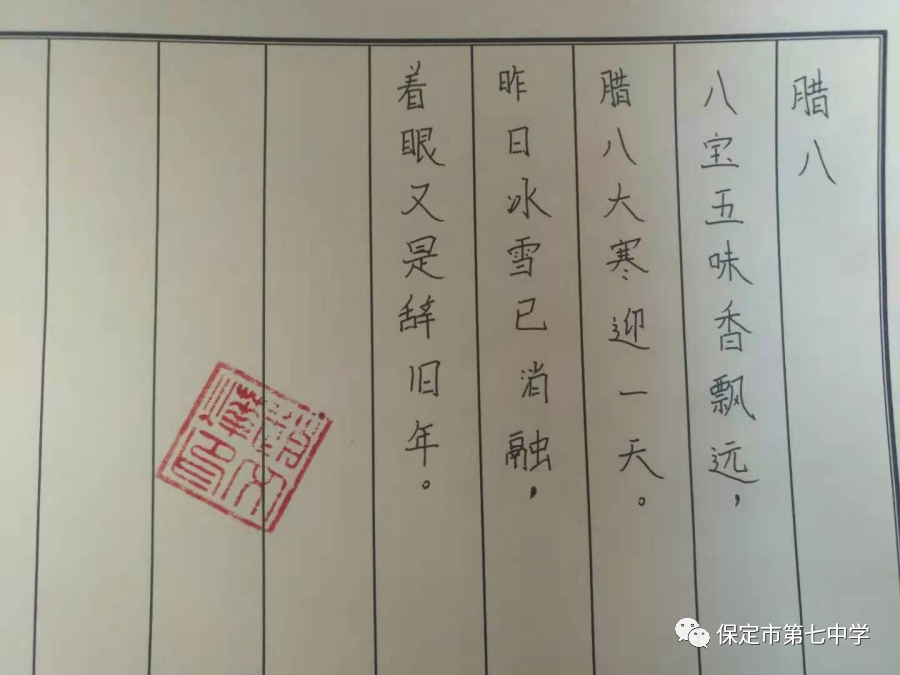 腊八
八宝五味香飘远，
腊八大寒迎一天。
昨日冰雪已消融，
着眼又是辞旧年。
保定市第七中学